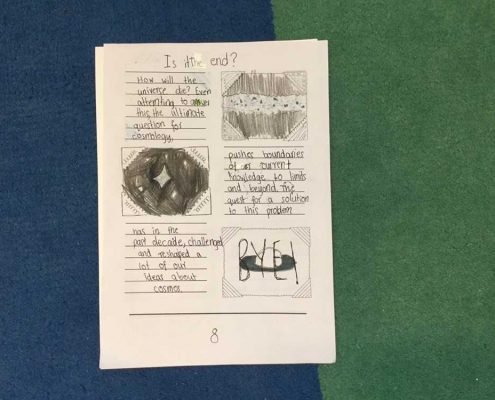 Is it the end?
How will the
universe die? Even
attempting to answer
this, the ultimate
question for
cosmology,
pushes boundaries
of our current
knowledge to limits
and beyond. The
quest for a solution
to this problem
has in the
past decade, challenged
and reshaped a
lot of our
ideas about
cosmos.
BYE!
8